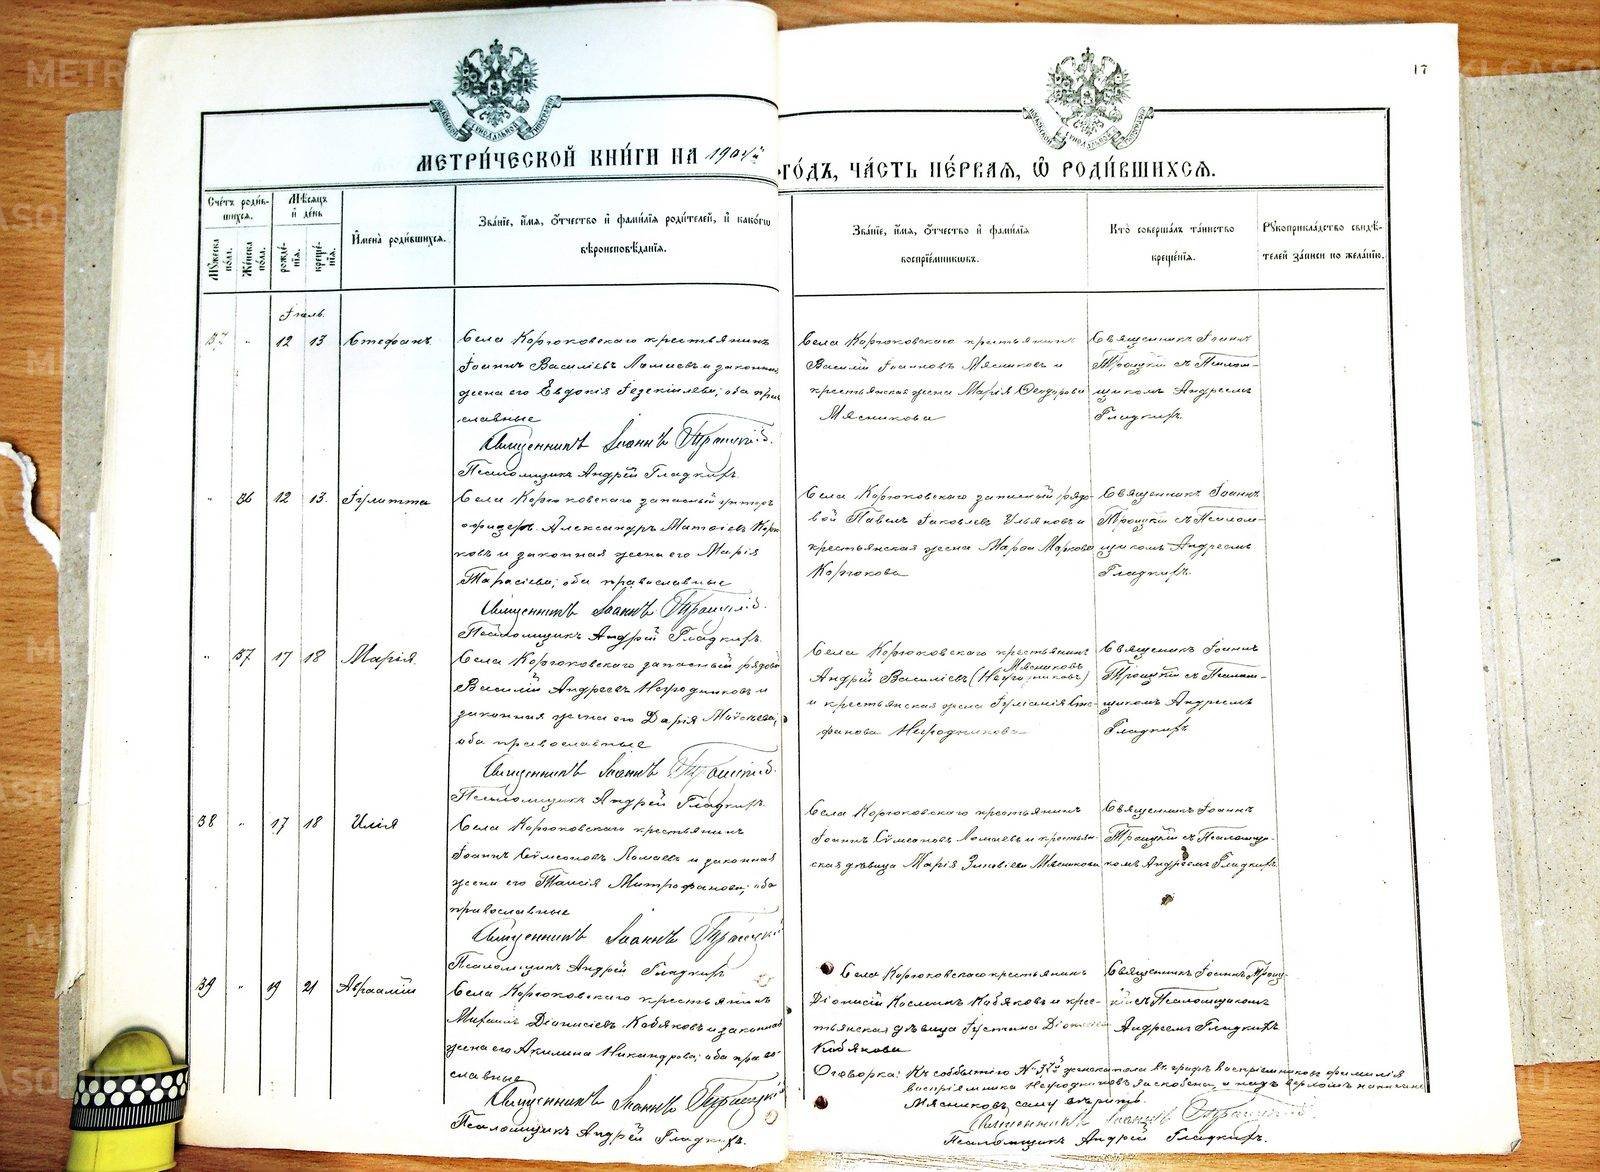 17
МЕТРИ́ЧЕСКОЙ КНИ́ГИ НА 1904й
ГО́ДЪ, ЧА́СТЬ ПЕ́РВАЯ, Ѡ҆ РОДИ́ВШИХСѦ.
Сче́тъ роди́в-
шихся.
Мѣ́сяцъ
и҆ де́нь
Му́жеска по́ла.
Же́нска по́ла.
рожде́-
нїя.
креще́-
нїя.
И҆мена̀ роди́вшихся.
Зва́нїе, и҆́мя, ѻ҆́тчество и҆ фами́лїя роди́телей, и҆ како́гѡ
вѣроисповѣ́данїя.
Зва́нїе, и҆́мя, ѻ҆́тчество и҆ фами́лїя
воспрїе́мниковъ.
Кто̀ соверша́лъ та́инство
креще́нїя.
Рꙋкоприкла́дство свидѣ́-
телей за́писи по жела́нїю.
Іюль.
37 " 12 13 Стефанъ
Села Коргюковскаго крестьянинъ
Іоаннъ Васильевъ Ломаевъ и законная
жена его Евдокія Іезекіилева; оба пра-
славные
Священникъ Іоаннъ Троицкій.
Псаломщикъ Андрей Гладкихъ.
Села Коргюковскаго крестьянинъ
Василій Іоанновъ Мясниковъ и
крестьянская жена Марія Ѳеодорова
Мясникова
Священникъ Іоаннъ
Троицкій съ Псалом-
щикомъ Андреемъ
Гладкихъ
" 36 12 13. Іулитта
Села Коргюковскаго запасный унтеръ
офицеръ Александръ Матѳіевъ Коргю-
ковъ и законная жена его Марія
Тарасіева; оба православные
Священникъ Іоаннъ Троицкій.
Псаломщикъ Андрей Гладкихъ.
Села Коргюковскаго запасной рядо-
вой Павелъ Іаковлевъ Ульяновъ и
крестьянская жена Марѳа Маркова
Коргюкова
Священникъ Іоаннъ
Троицкій съ Псалом-
щикомъ Андреемъ
Гладкихъ.
" 37 17 18 Марія.
Села Коргюковскаго запасный рядовой
Василій Андреевъ Негодниковъ и
законная жена его Дарія Моѵсеева;
оба православные
Священникъ Іоаннъ Троицкій.
Псаломщикъ Андрей Гладкихъ.
Села Коргюковскаго крестьянинъ
Мясниковъ
Андрей Василіевъ (Негодниковъ)
и крестьянская жена Іуліанія Сте-
фанова Негодникова
Священникъ Іоаннъ
Троицкій съ Псалом-
щикомъ Андреемъ
Гладкихъ
38 " 17 18 Илія
Села Коргюковскаго крестьянинъ
Іоаннъ Сѵмеоновъ Ломаевъ и законная
жена его Таисія Митрофанова; оба
православные
Священникъ Іоаннъ Троицкій
Псаломщикъ Андрей Гладкихъ
Села Коргюковскаго крестьянинъ
Іоаннъ Сѵмеоновъ Ломаевъ и крестьян-
ская дѣвица Марія Зиновіева Мясникова
Священникъ Іоаннъ
Троицкій съ Псаломщи-
комъ Андреемъ Гладкихъ
39 " 19 21 Авраамій
Села Коргюковскаго крестьянинъ
Михаилъ Діонисіевъ Кобяковъ и законная
жена его Акилина Никандрова; оба право-
славные
Священникъ Іоаннъ Троицкій
Псаломщикъ Андрей Гладкихъ.
Села Коргюковскаго крестьянинъ
Діонисій Космичъ Кобяковъ и кре-
стьянская дѣвица Іустина Діонисіева
Кобякова
Священникъ Іоаннъ Троиц-
кій съ Псаломщикомъ
Андреемъ Гладкихъ
Оговорка: Къ событію № 37й женскаго пола въ графѣ воспріемниковъ фамилія
воспріемника Негодниковъ заскоблена, и надъ верхомъ написана
Мясниковъ, сему вѣрить.
Священникъ Іоаннъ Троицкій.
Псаломщикъ Андрей Гладкихъ.